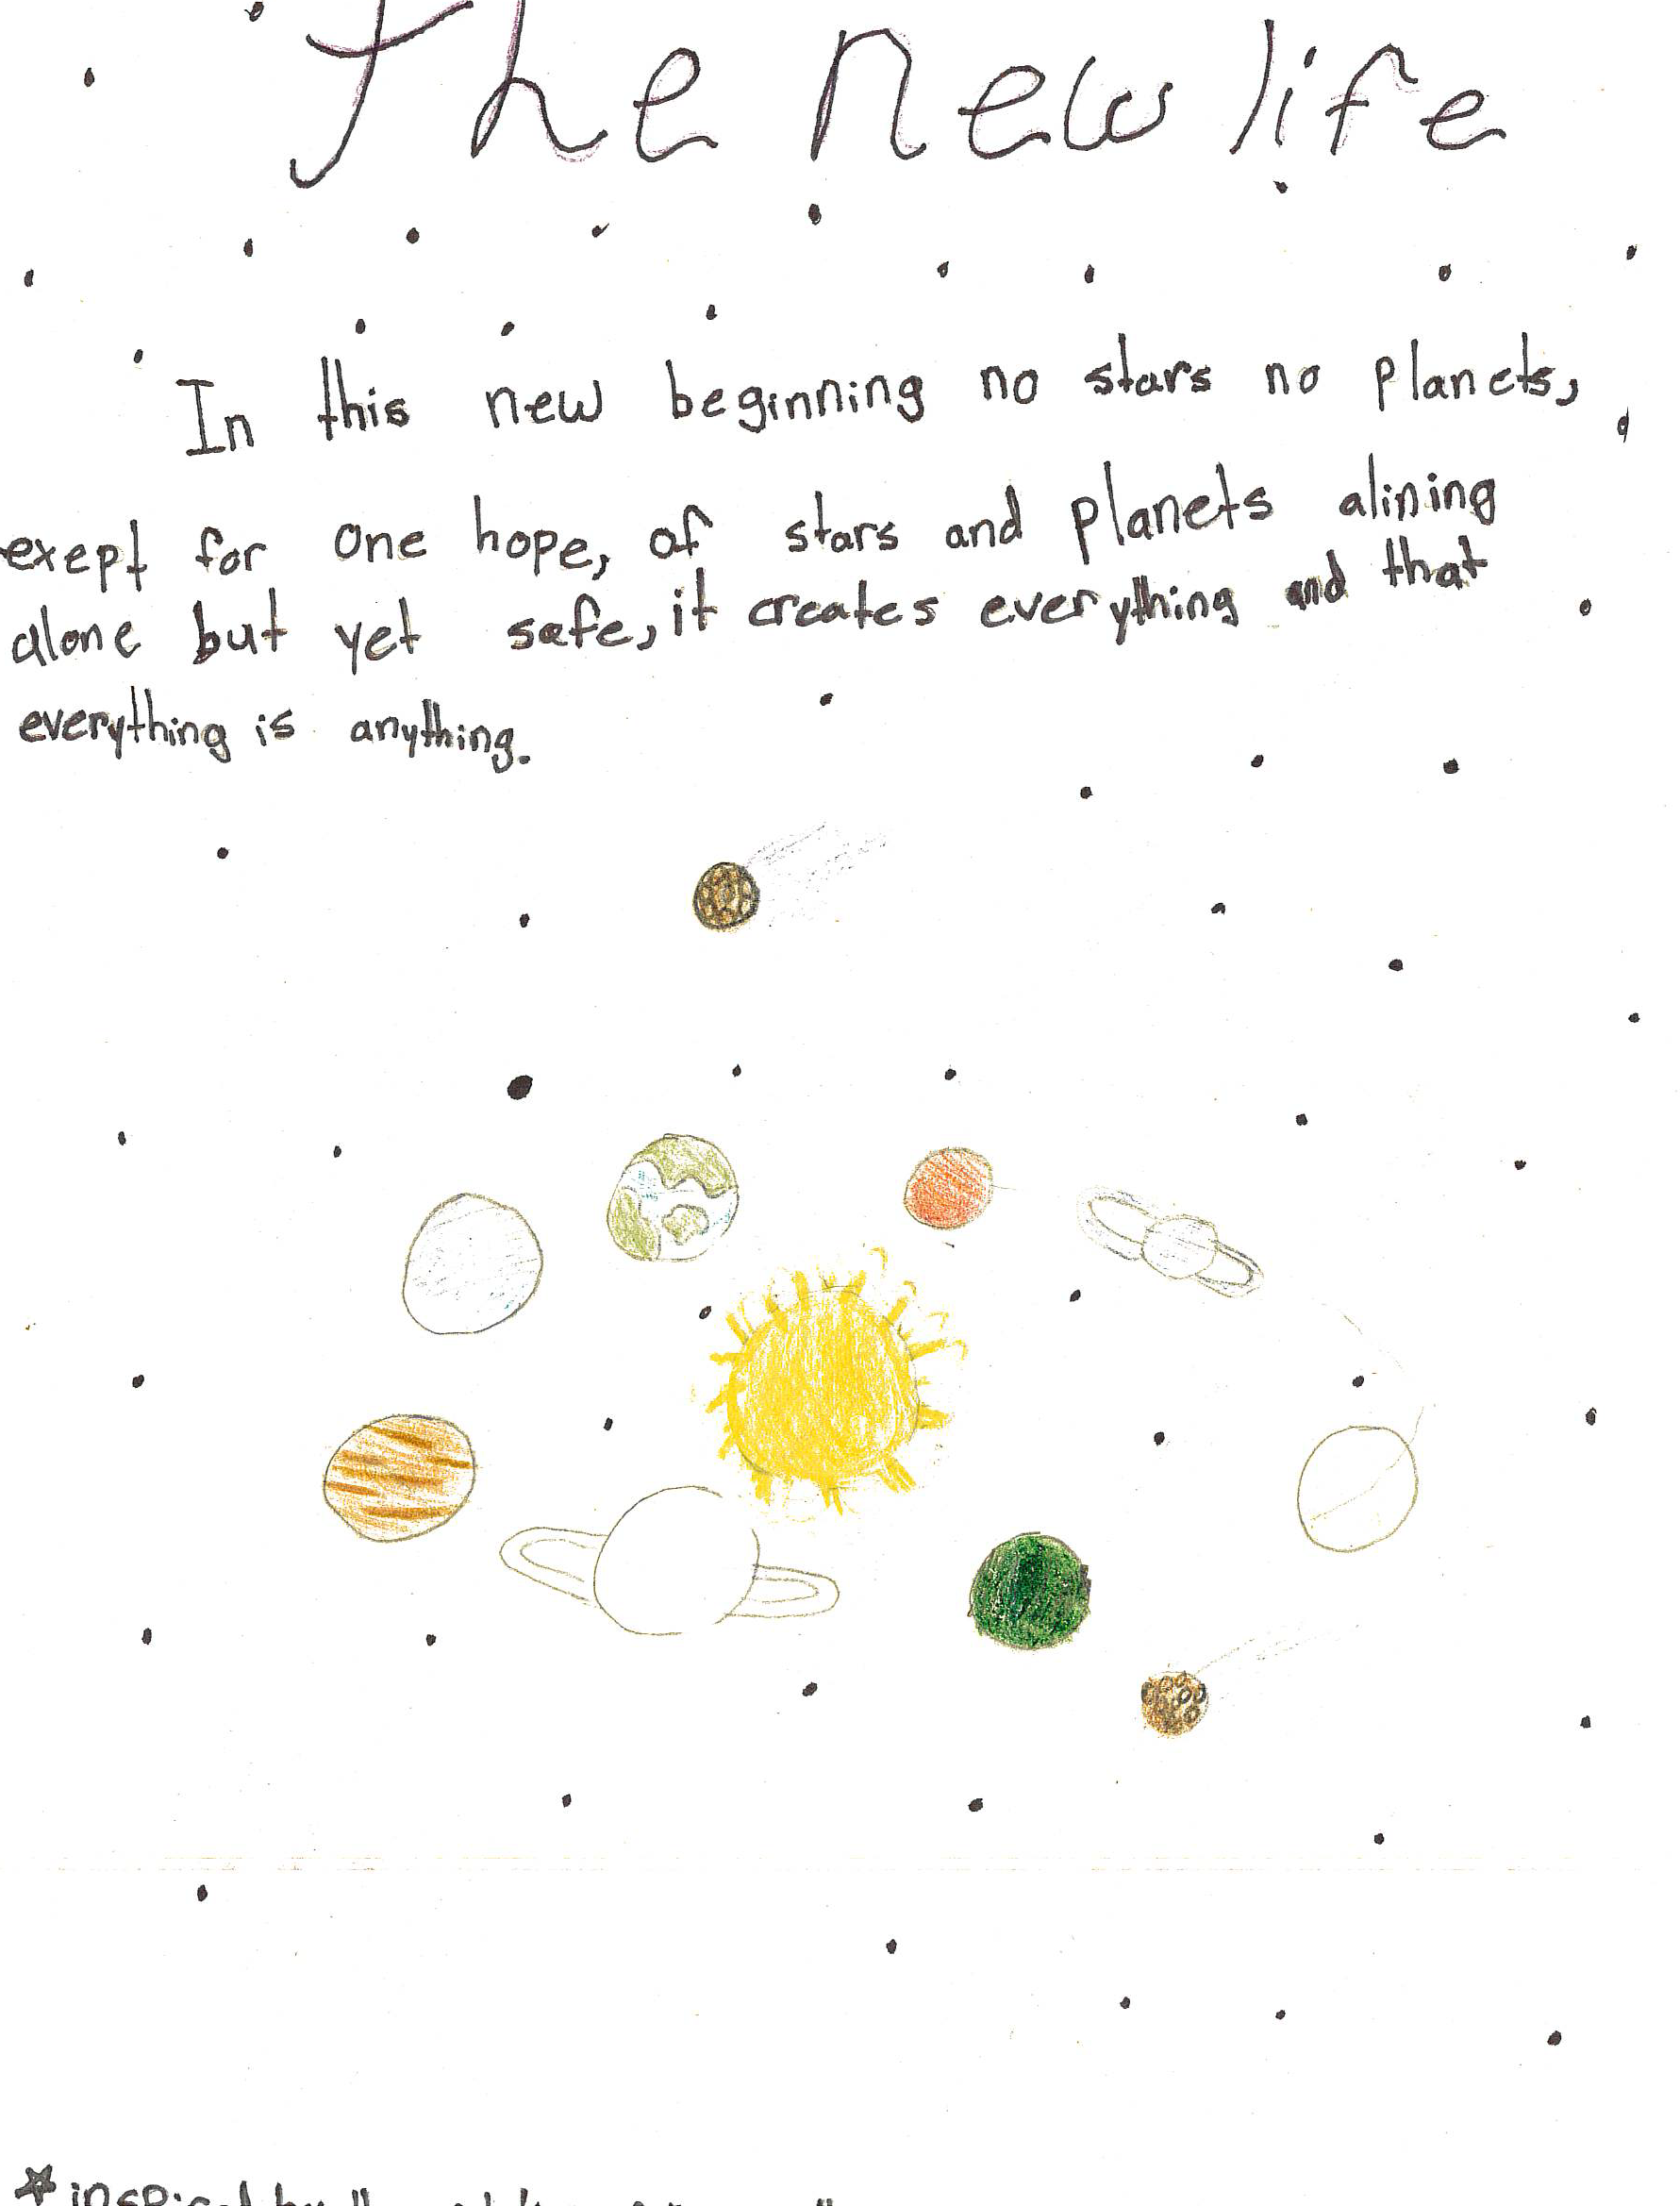 The new life
In this new beginning no stars no planets,
exept for one hope, of stars and planets alining
alone but yet safe, it creates everything and that
everything is anything.
inspired by the